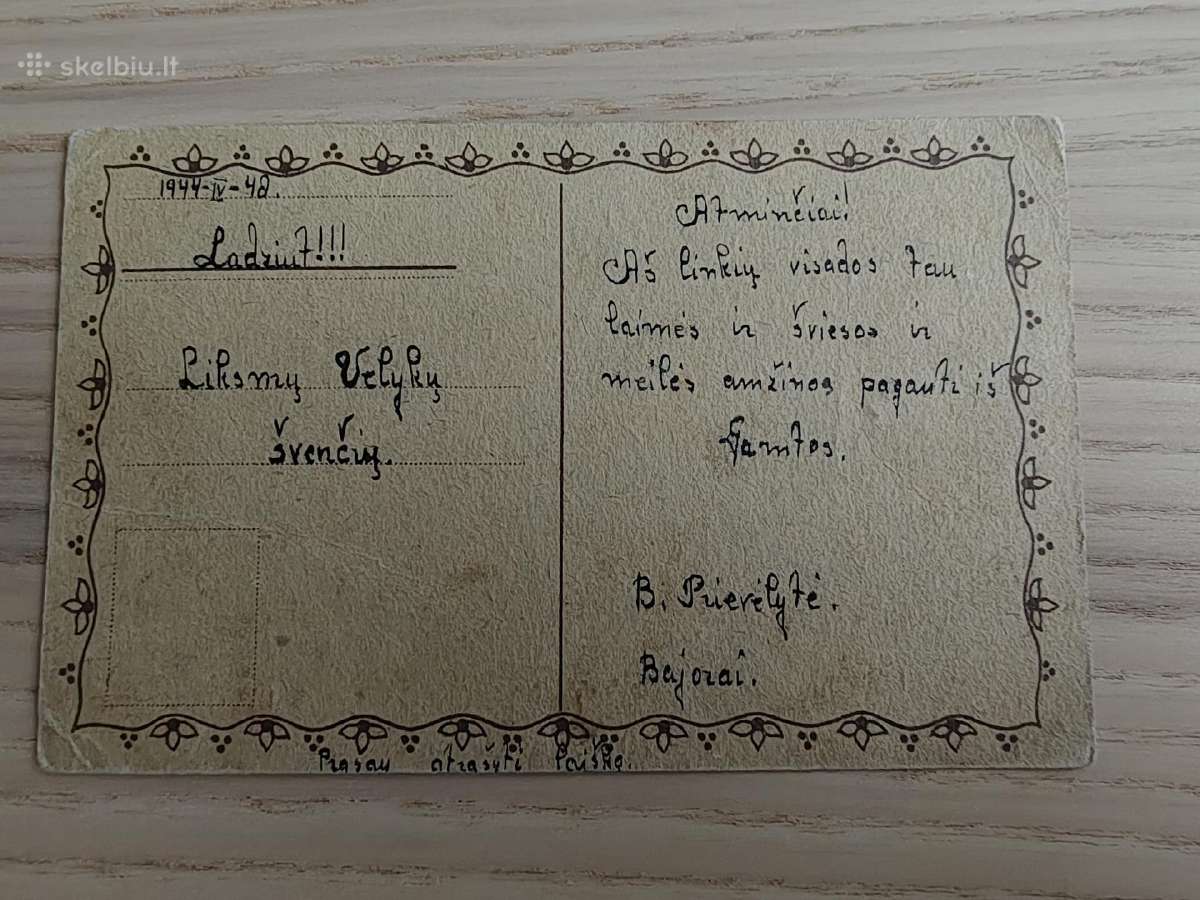 skelbiu.lt
1944-IV-
Ladziut!!!
Liksmų Velykų
švenčių.
Atminčiai!
Aš linkių visados tau
laimės ir šviesos ir
meilės amžinos pagauti iš
Gamtos.
B. Prierėlytė.
Bajorai.
Prašau atrašyti laišką.